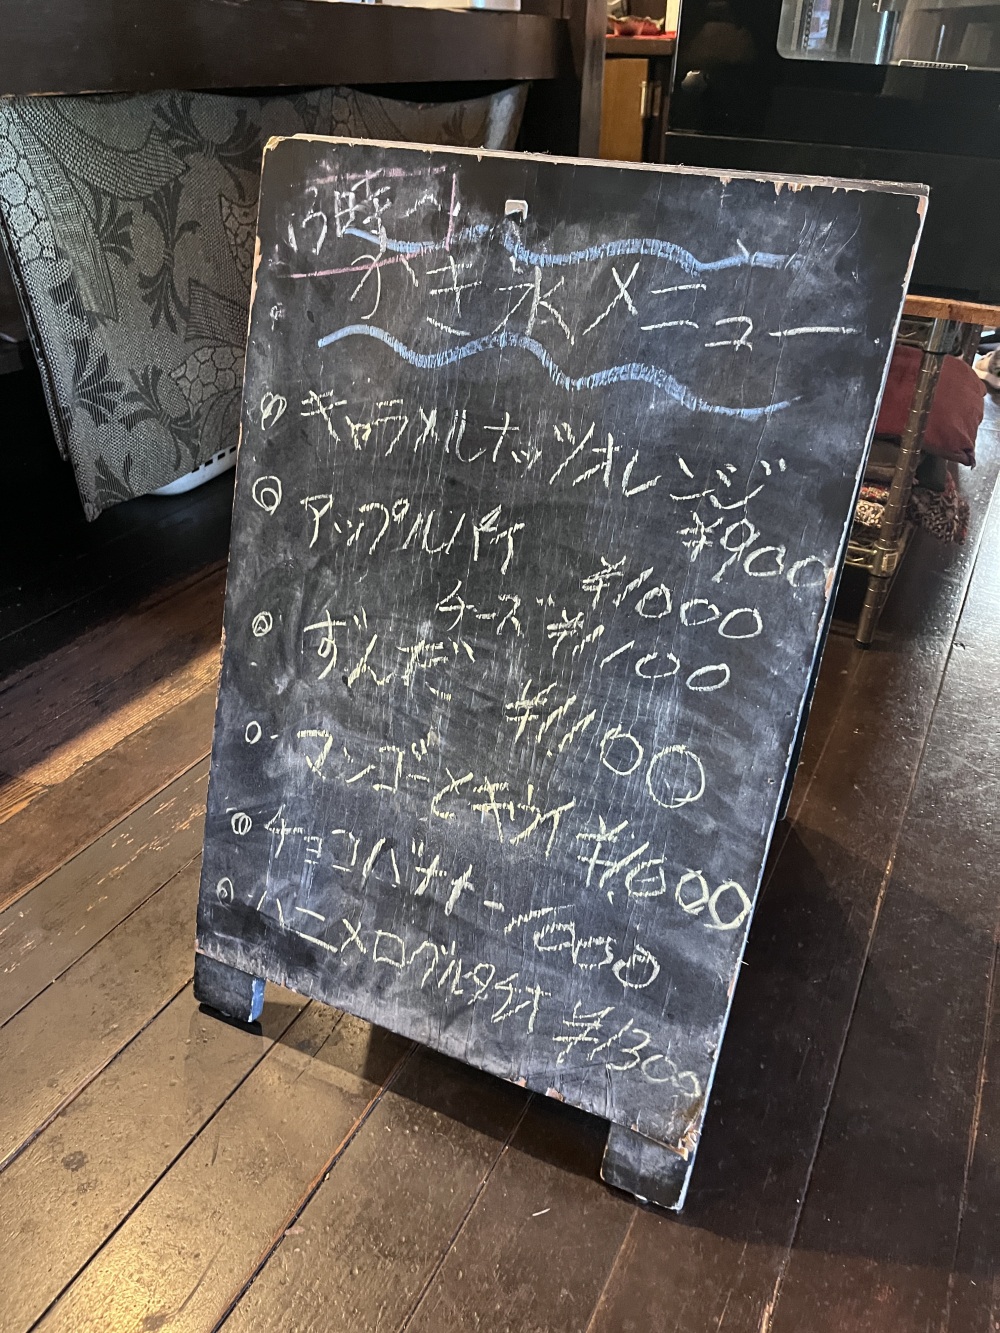 13時〜
かき氷メニュー
◎キャラメルナッツオレンジ
¥900
◎アップルパイ
¥1000
チーズ ¥1100
◎ずんだ
¥1100
◎マンゴーとキウイ
¥1000
◎チョコバナナ-1000
◎ハニメログルタチオ ¥1300